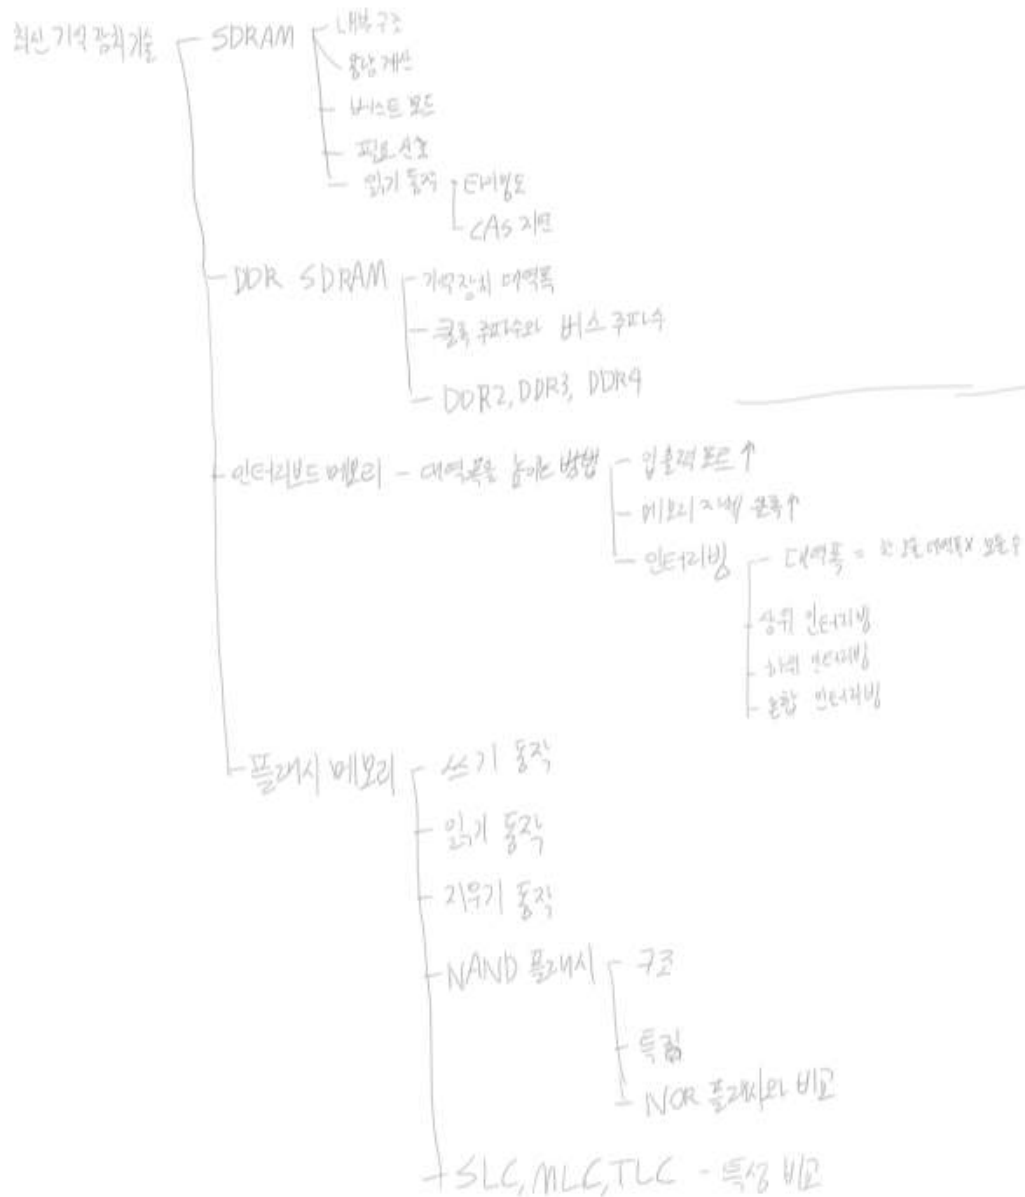 최신 기억 장치 기술
SDRAM
내부 구조
용량 계산
버스트 모드
필요 신호
읽기 동작
타이밍도
CAS 지연
DDR SDRAM
기억장치 대역폭
클록 주파수와 버스 주파수
DDR2, DDR3, DDR4
인터리브드 메모리 - 대역폭을 높이는 방법
입출력 포트 ↑
메모리 자체 클록 ↑
인터리빙
대역폭 = 한 모듈 대역폭 X 모듈 수
상위 인터리빙
하위 인터리빙
혼합 인터리빙
플래시 메모리
쓰기 동작
읽기 동작
지우기 동작
NAND 플래시
구조
특징
NOR 플래시와 비교
SLC, MLC, TLC - 특성 비교